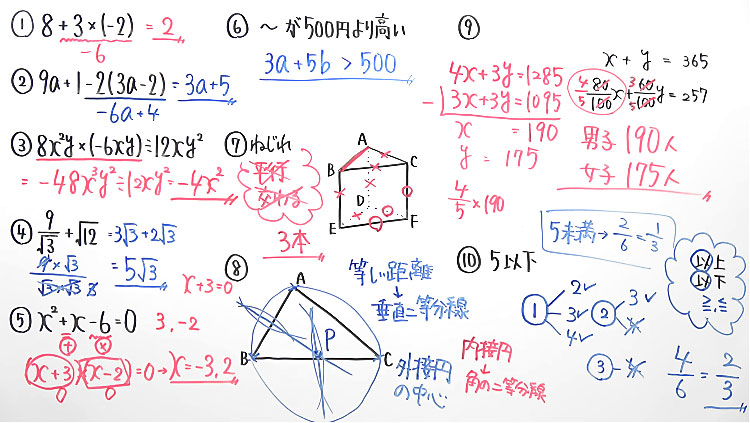 ① 8+3×(-2) = 2
-6
② 9a+1-2(3a-2) = 3a+5
-6a+4
③ 8x²y×(-6xy)÷12xy²
= -48x³y²÷12xy² = -4x²
④ 9/√3 + √12 = 3√3+2√3
9×√3/√3×√3 = 5√3
x+3=0
⑤ x²+x-6=0 3, -2
+ ×
(x+3)(x-2)=0 → x=-3, 2
0 0
⑥ 〜が500円より高い
3a+5b > 500
⑦ ねじれ
平行
交わる
3本
A
B
C
D
E
F
⑧
A
B
C
P
等しい距離
↓
垂直二等分線
外接円
の中心
内接円
↓
角の二等分線
⑨
x + y = 365
80/100 x + 60/100 y = 257
4 3
5 5
4x+3y=1285
- 3x+3y=1095
x = 190
y = 175
4/5 ×190
男子 190人
女子 175人
⑩ 5以下
5未満→ 2/6 = 1/3
以上
以下
≧,≦
1 2✓ 3✓ 4✓
2 3✓ 4
3 4
4/6 = 2/3